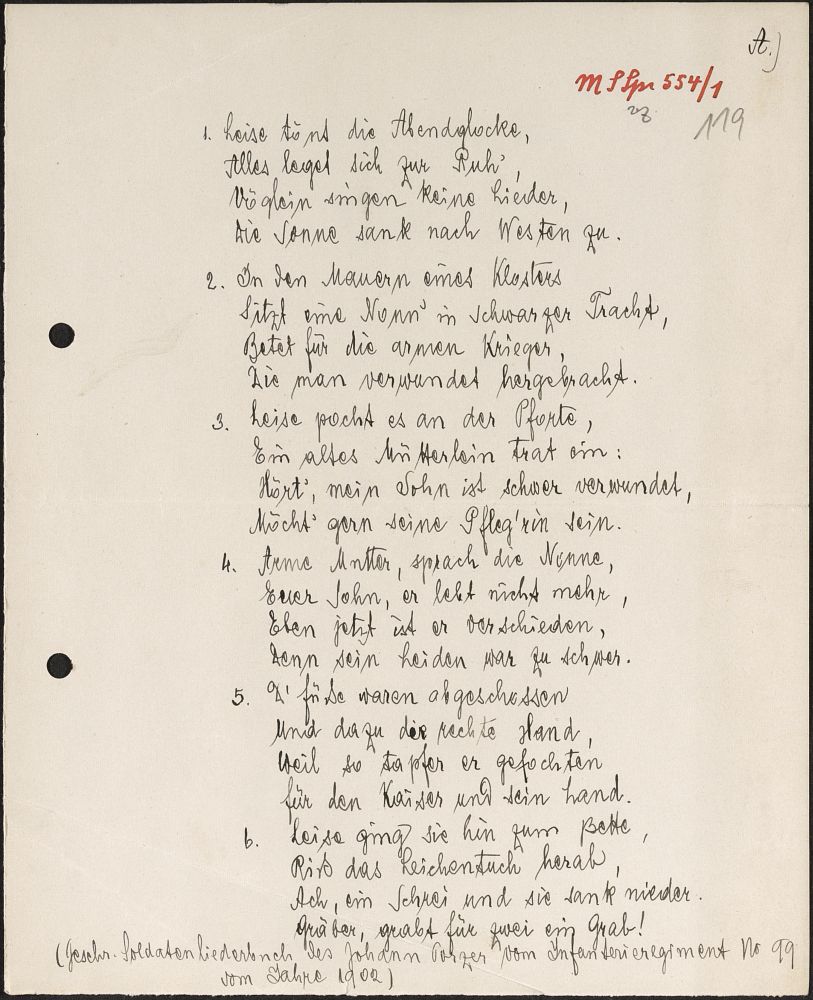 A.)
M S Spr 554/1
119
1. Leise tönt die Abendglocke,
Alles leget sich zur Ruh',
Vöglein singen keine Lieder,
Die Sonne sank nach Westen zu.
2. In den Mauern eines Klosters
Sitzt eine Nonn' in schwarzer Tracht,
Betet für die armen Krieger,
Die man verwundet hergebracht.
3. Leise pocht es an der Pforte,
Ein altes Mütterlein trat ein:
Hört', mein Sohn ist schwer verwundet,
Möcht' gern seine Pfleg'rin sein.
4. Arme Mutter, sprach die Nonne,
Euer Sohn, er lebt nicht mehr,
Eben jetzt ist er verschieden,
Denn sein Leiden war zu schwer.
5. D' füße waren abgeschossen
Und dazu die rechte Hand,
Weil so tapfer er gefochten
für den Kaiser und sein Land.
6. Leise ging sie hin zum Bette,
Riß das Leichentuch herab,
Ach, ein Schrei und sie sank nieder.
Gräber, grabt für zwei ein Grab!
(Geschr. Soldatenliederbuch des Johann Porzer vom Infanterieregiment No 99
vom Jahre 1902)